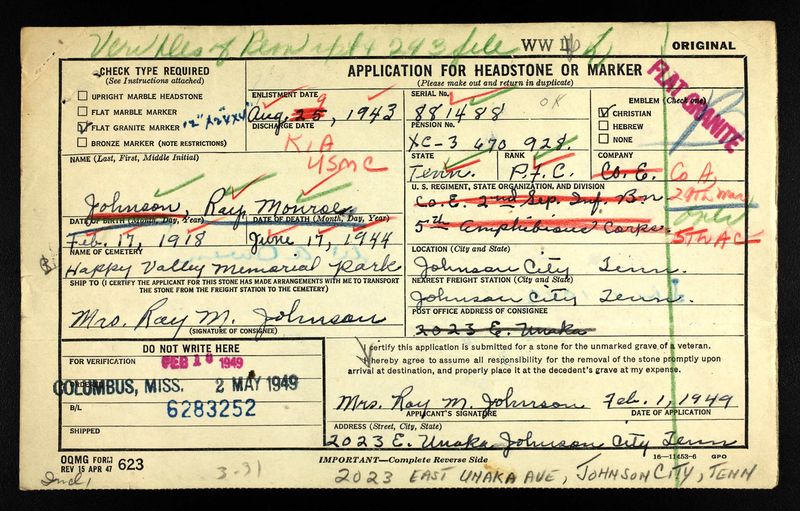 Verifies of Rem 293 file WW II
ORIGINAL
CHECK TYPE REQUIRED
(See Instructions attached)
UPRIGHT MARBLE HEADSTONE
FLAT MARBLE MARKER
FLAT GRANITE MARKER 12"X24"X4"
BRONZE MARKER (NOTE RESTRICTIONS)
APPLICATION FOR HEADSTONE OR MARKER
(Please make out and return in duplicate)
ENLISTMENT DATE
Aug. 25, 1943
9
DISCHARGE DATE
KIA
USMC
SERIAL No.
881488 OK
PENSION No.
XC-3 470 928.
EMBLEM (Check one)
CHRISTIAN
HEBREW
NONE
FLAT GRANITE
STATE
Tenn.
RANK
P.F.C.
COMPANY
Co. E.
Co A,
29th Mar
5TH AC
NAME (Last, First, Middle Initial)
Johnson, Ray Monroe
U. S. REGIMENT, STATE ORGANIZATION, AND DIVISION
Co. E. 2nd Sep. Inf. Bn
5th Amphibious Corps.
DATE OF BIRTH (Month, Day, Year)
Feb. 17, 1918
DATE OF DEATH (Month, Day, Year)
June 17, 1944
NAME OF CEMETERY
Happy Valley Memorial Park
LOCATION (City and State)
Johnson City Tenn.
SHIP TO (I CERTIFY THE APPLICANT FOR THIS STONE HAS MADE ARRANGEMENTS WITH ME TO TRANSPORT
THE STONE FROM THE FREIGHT STATION TO THE CEMETERY)
Mrs. Ray M. Johnson
(SIGNATURE OF CONSIGNEE)
NEAREST FREIGHT STATION (City and State)
Johnson City Tenn.
POST OFFICE ADDRESS OF CONSIGNEE
2023 E. Unaka
DO NOT WRITE HERE
FOR VERIFICATION
FEB 1949
COLUMBUS, MISS. 2 MAY 1949
B/L
6283252
SHIPPED
I certify this application is submitted for a stone for the unmarked grave of a veteran.
I hereby agree to assume all responsibility for the removal of the stone promptly upon
arrival at destination, and properly place it at the decedent's grave at my expense.
Mrs. Ray M. Johnson Feb. 1, 1949
APPLICANT'S SIGNATURE
DATE OF APPLICATION
ADDRESS (Street, City, State)
2023 E. Unaka Johnson City Tenn
OQMG FORM
REV 15 APR 47 623
IMPORTANT—Complete Reverse Side
16—11453-6 GPO
Incl 1
3-31
2023 EAST UNAKA AVE, JOHNSON CITY, TENN